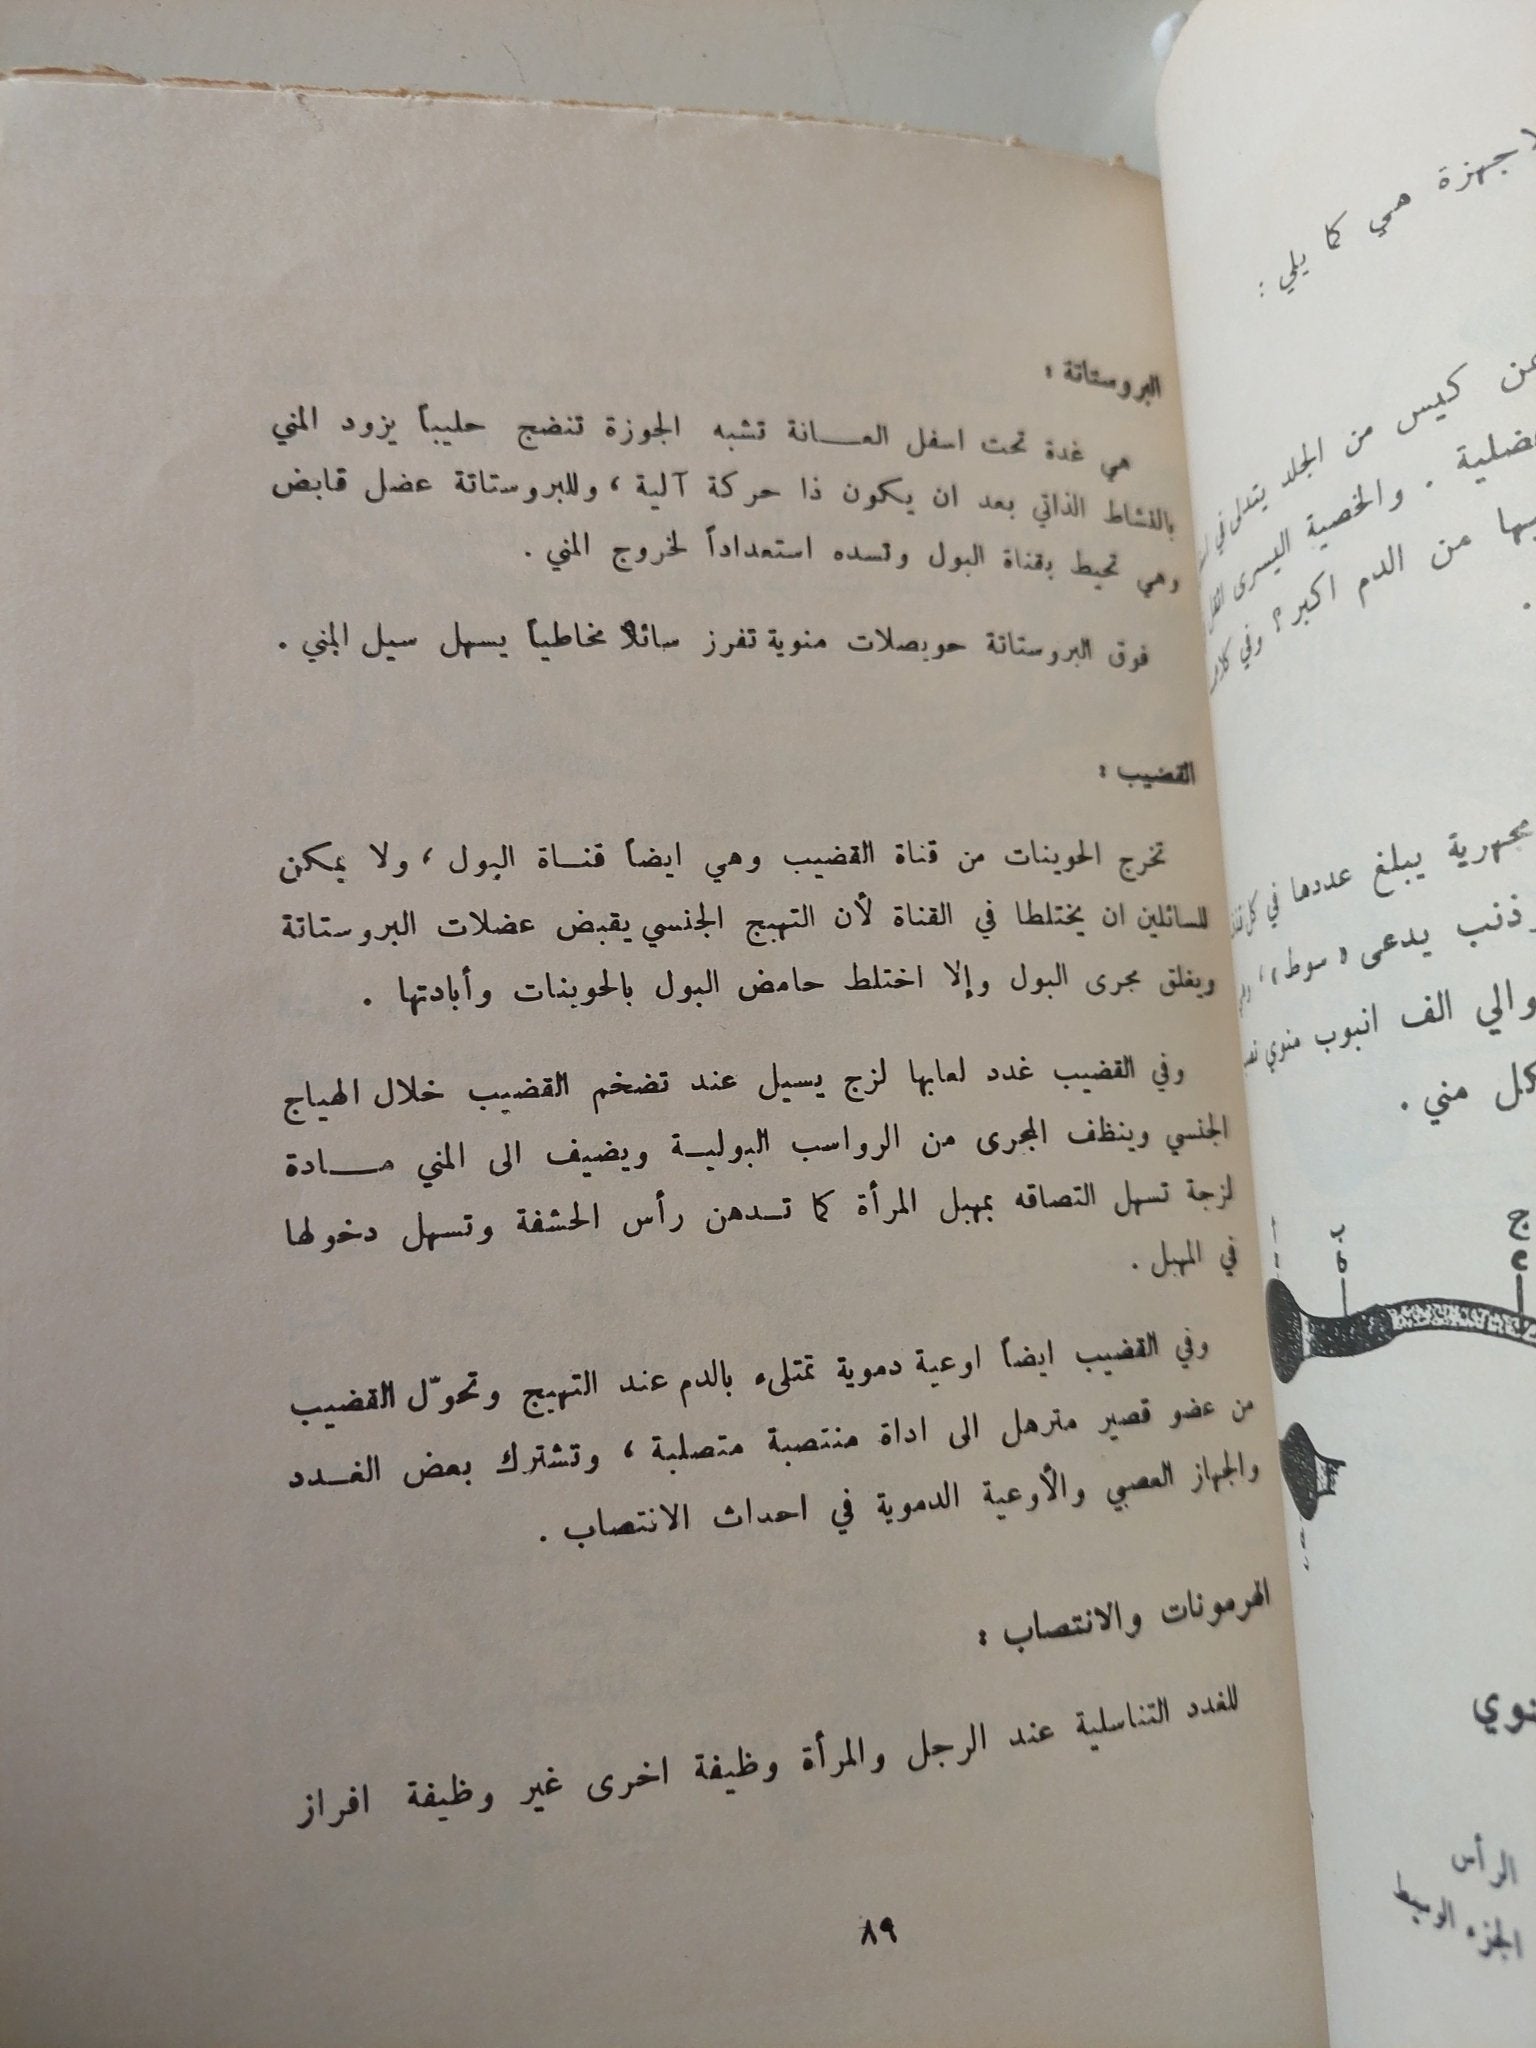 البروستاتة :
هي غدة تحت اسفل العـــانة تشبه الجوزة تنضج حليباً يزود المني
بالنشاط الذاتي بعد ان يكون ذا حركة آلية ، وللبروستاتة عضل قابض
وهي تحيط بقناة البول وتسده استعداداً لخروج المني .
فوق البروستاتة حويصلات منوية تفرز سائلاً مخاطياً يسهل سيل المني .
القضيب :
تخرج الحوينات من قناة القضيب وهي ايضاً قنــاة البول ، ولا يمكن
للسائلين ان يختلطا في القناة لأن التهيج الجنسي يقبض عضلات البروستاتة
ويغلق مجرى البول وإلا اختلط حامض البول بالحوينات وأبادتها .
وفي القضيب غدد لعابها لزج يسيل عند تضخم القضيب خلال الهياج
الجنسي وينظف المجرى من الرواسب البوليــة ويضيف الى المني مـــادة
لزجة تسهل التصاقه بمهبل المرأة كما تــدهن رأس الحشفة وتسهل دخولها
في المهبل .
وفي القضيب ايضاً اوعية دموية تمتلىء بالدم عند التهيج وتحوّل القضيب
من عضو قصير مترهل الى اداة منتصبة متصلبة ، وتشترك بعض الغــدد
والجهاز العصبي والأوعية الدموية في احداث الانتصاب .
الهرمونات والانتصاب :
للغدد التناسلية عند الرجل والمرأة وظيفة اخرى غير وظيفة افراز
٨٩
هي كما يلي :
كيس من الجلد يتدلى في
والخصية اليسرى
من الدم اكبر ؟ وفي
مجهرية يبلغ عددها في كل
يدعى « سوط » ،
الف انبوب منوي
كل مني .
أ ب ج
الرأس
الجزء الوسيط